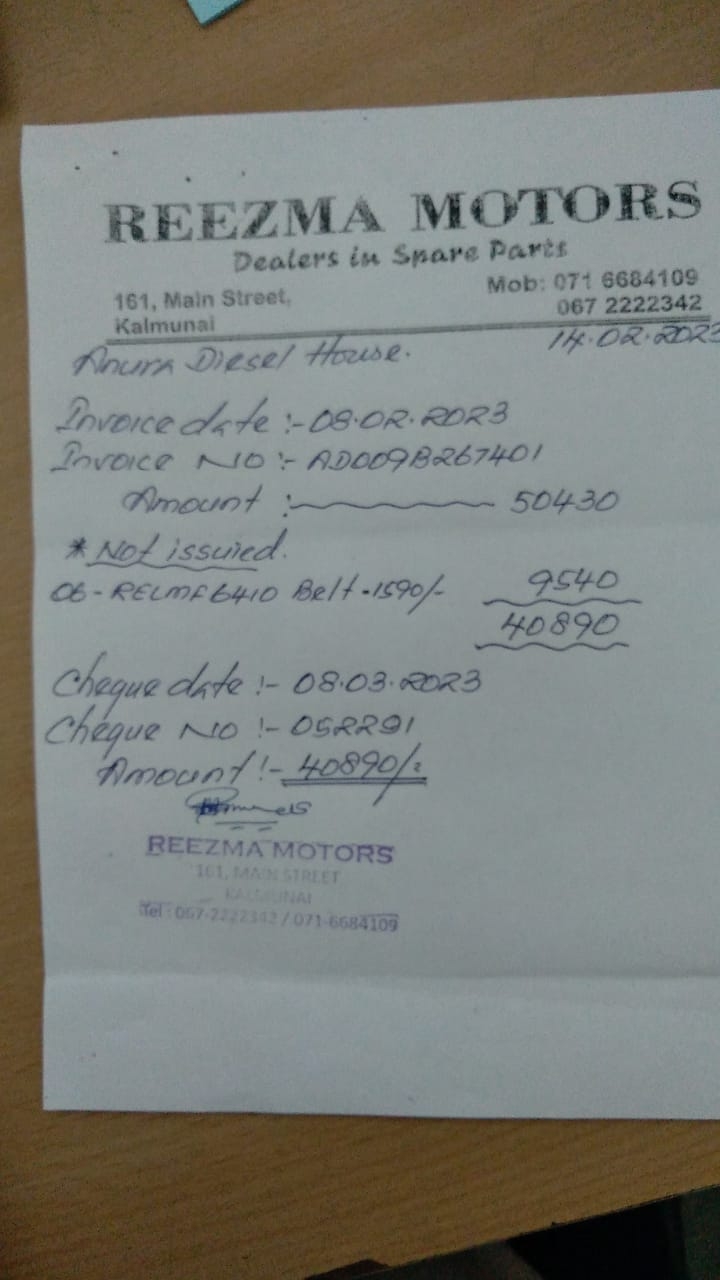 REEZMA MOTORS
Dealers in Spare Parts
161, Main Street,
Kalmunai
Mob: 071 6684109
067 2222342
14.02.2023
Anura Diesel House.
Invoice date :- 08.02.2023
Invoice No :- AD009B267401
Amount : 50430
* Not issuied.
06 - RELMF6410 Belt - 1590/- 9540
40890
Cheque date :- 08.03.2023
Cheque No :- 052291
Amount :- 40890/=
REEZMA MOTORS
161, MAIN STREET
KALMUNAI
Tel : 067-2222342 / 071-6684109